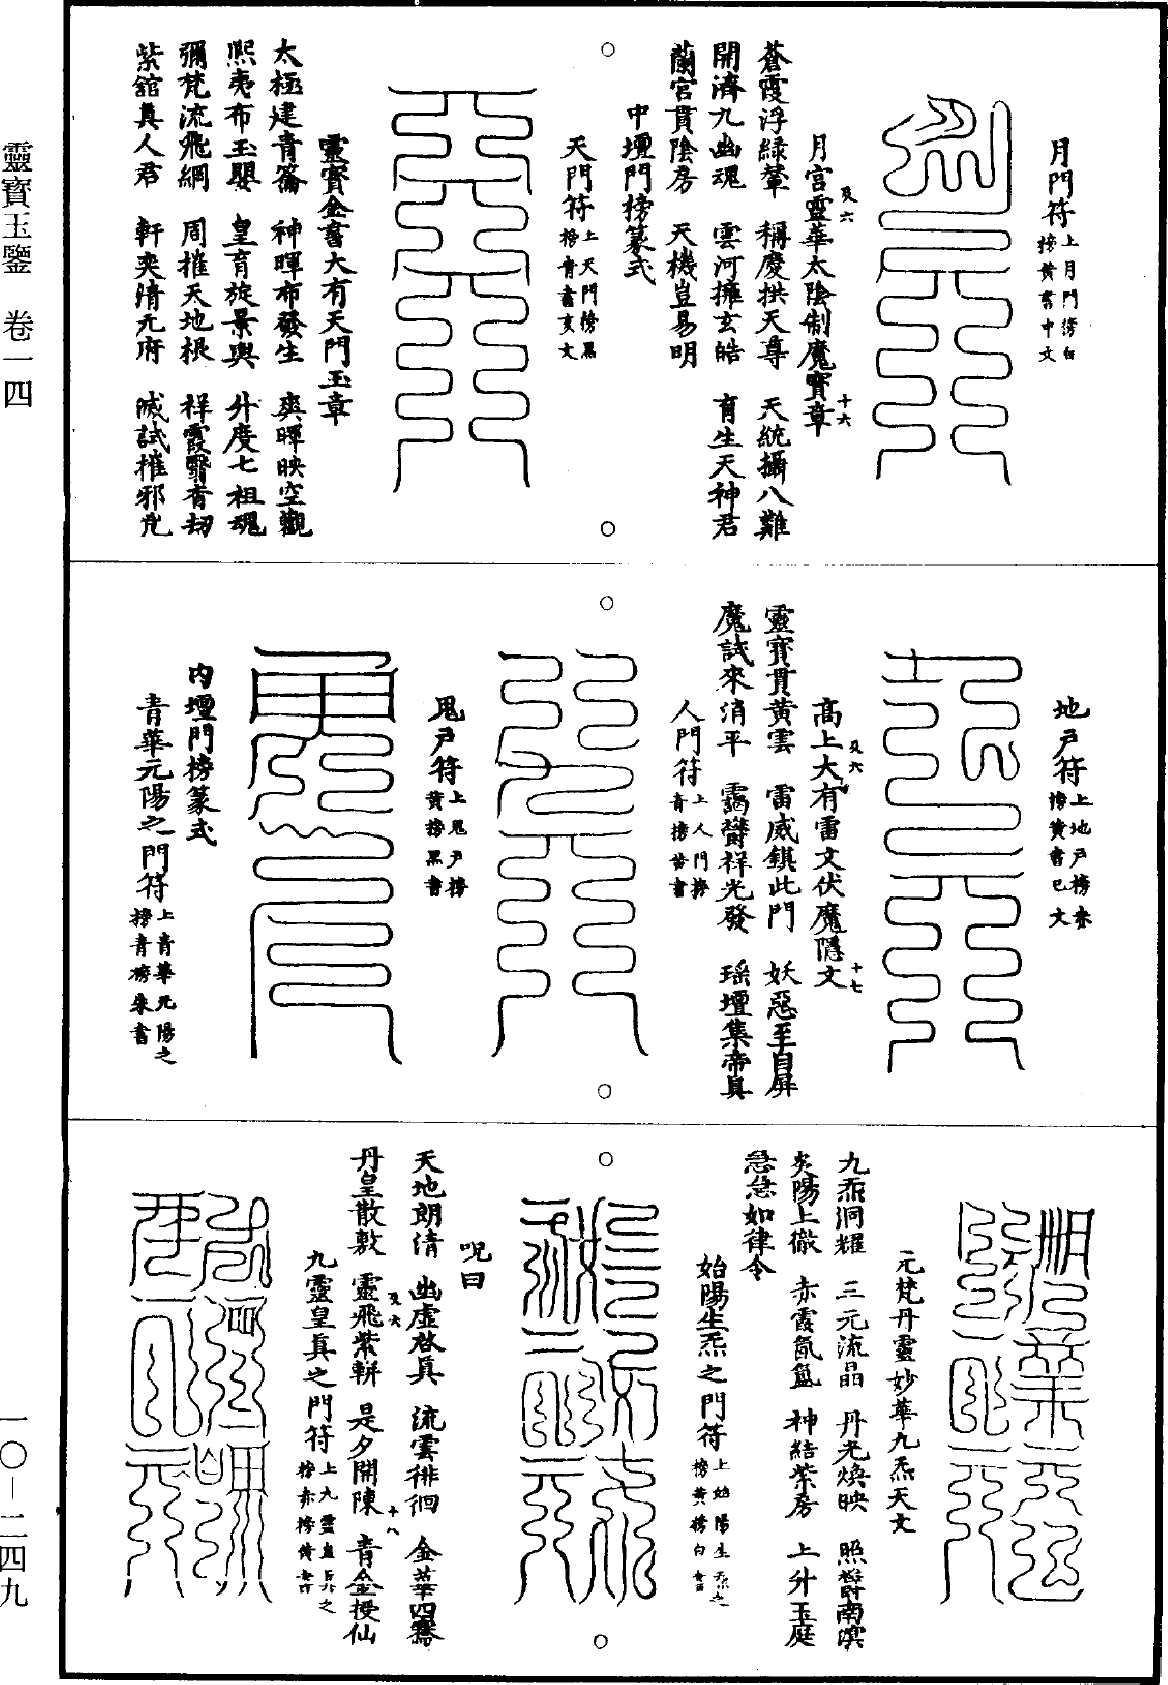 靈寶玉鑒　卷一四
月門符上月門榜白
榜黃書中文
月宮靈華太陰制魔寶章
及六　十六
蒼霞浮綠輦　稱慶拱天尊　天統攝八難
開濟九幽魂　雲河擁玄皓　育生天神君
蘭宮貫陰房　天機豈易明
中壇門榜篆式
天門符上天門榜黑
榜青書亥文
靈寶金書大有天門玉章
太極建青篇　神暉布發生　爽暉映空觀
熙夷布玉嬰　皇育旋景輿　升度七祖魂
彌梵流飛綱　周摧天地根　祥霞翳香劫
紫館真人君　軒奕靖元府　滅試摧邪兇
地戶符上地戶榜朱
榜黃書巳文
高上大有雷文伏魔隱文
及六　十七
靈寶貫黃雲　雷威鎮此門　妖惡至自屏
魔試來消平　靄鬱祥光發　瑤壇集帝真
人門符上人門榜
青榜黃書
鬼戶符上鬼戶榜
黃榜黑書
內壇門榜篆式
青華元陽之門符上青華元陽之
榜青榜朱書
元梵丹靈妙華九炁天文
九炁洞耀　三元流晶　丹光煥映　照鬱南溟
炎陽上徹　赤霞氤氳　神結紫房　上升玉庭
急急如律令
始陽生炁之門符上始陽生炁之
榜黃榜白書
咒曰
天地朗清　幽虛啓真　流雲徘徊　金華四騫
及六　十八
丹皇散敷　靈飛紫軿　是夕開陳　青金授仙
九靈皇真之門符上九靈皇真之
榜赤榜青書
一〇－二四九